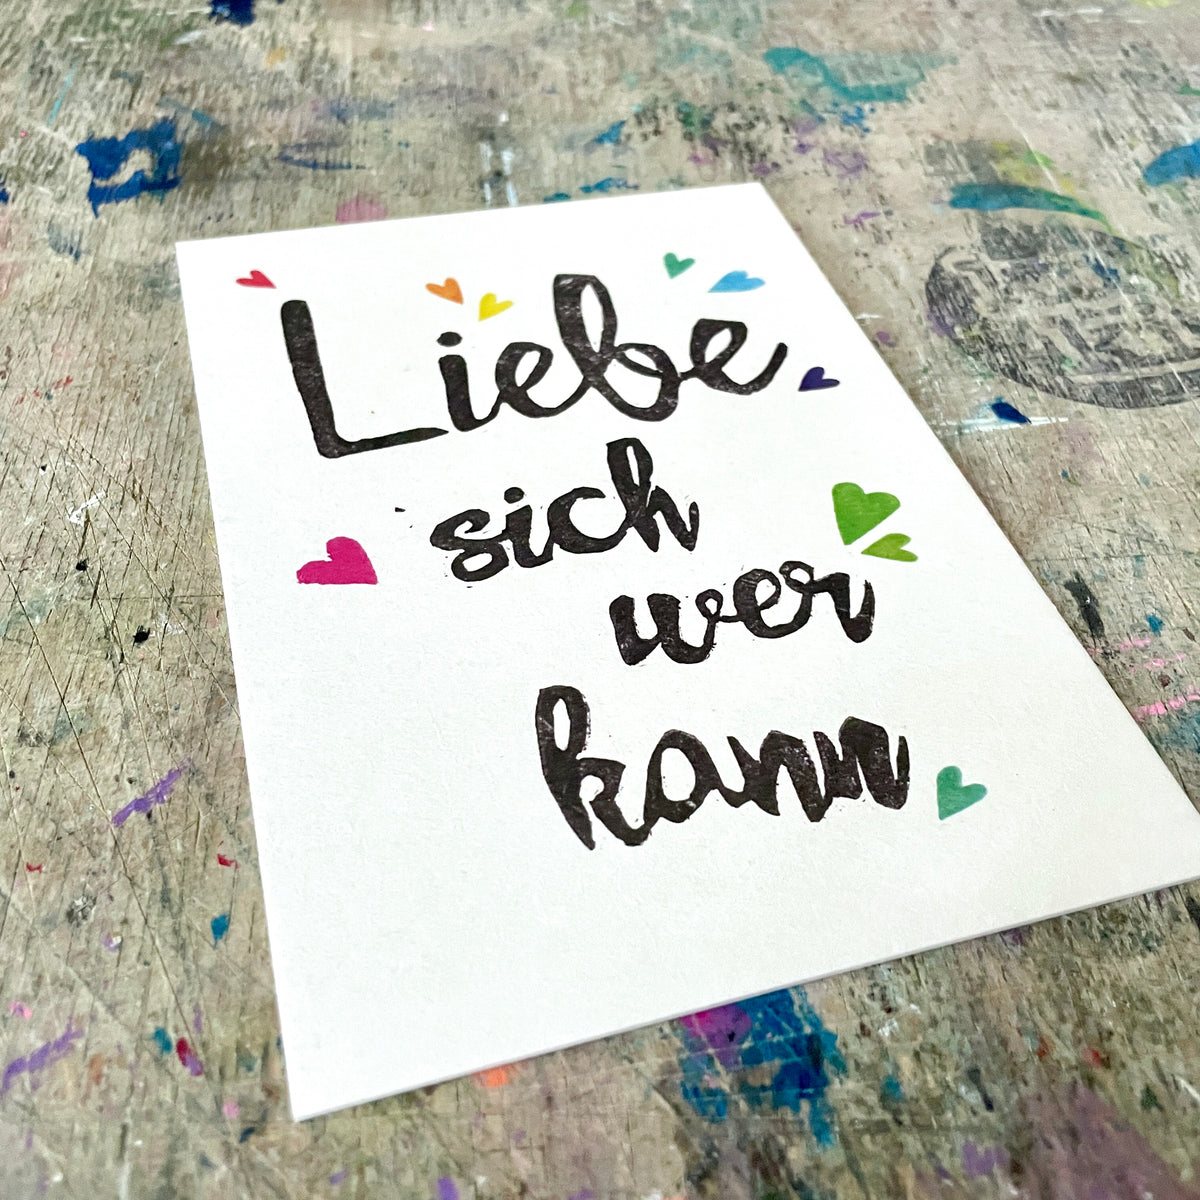 Liebe
sich
wer
kann